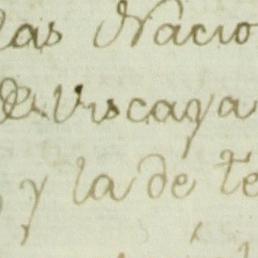 las Nacio
de Viscaya
y la de te